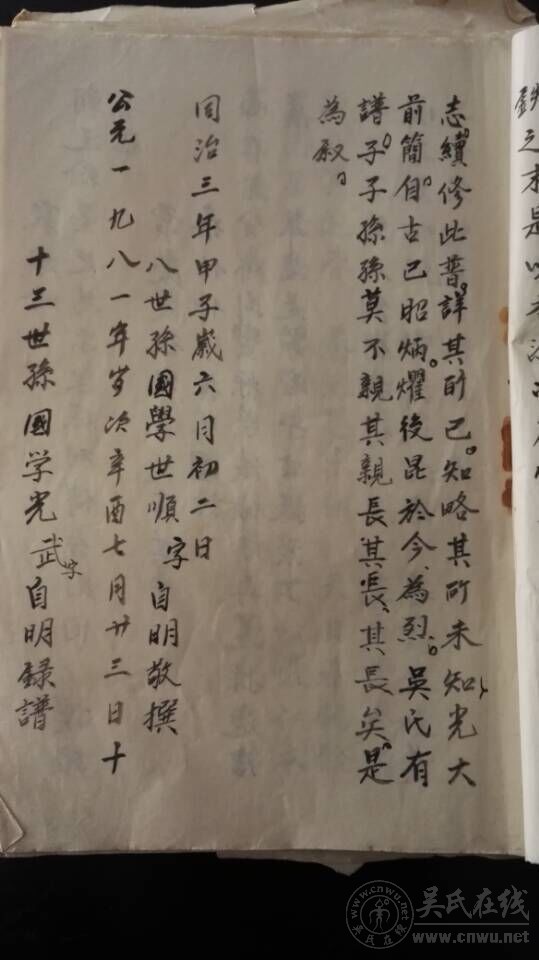 志續修此普。詳其所已。知略其所未知、光大
前簡。自古已昭炳。燿後昆於今、為烈。吳氏有
譜。子子孫孫莫不親其親長其長、其長矣。是
為叙。
同治三年甲子歲六月初二日
八世孫國學世順字自明敬撰
公元一九八一年岁次辛酉七月廿三日十
十三世孫國学光武字自明録譜
吴氏在线
www.cnwu.net
吴氏在线
www.cnwu.net